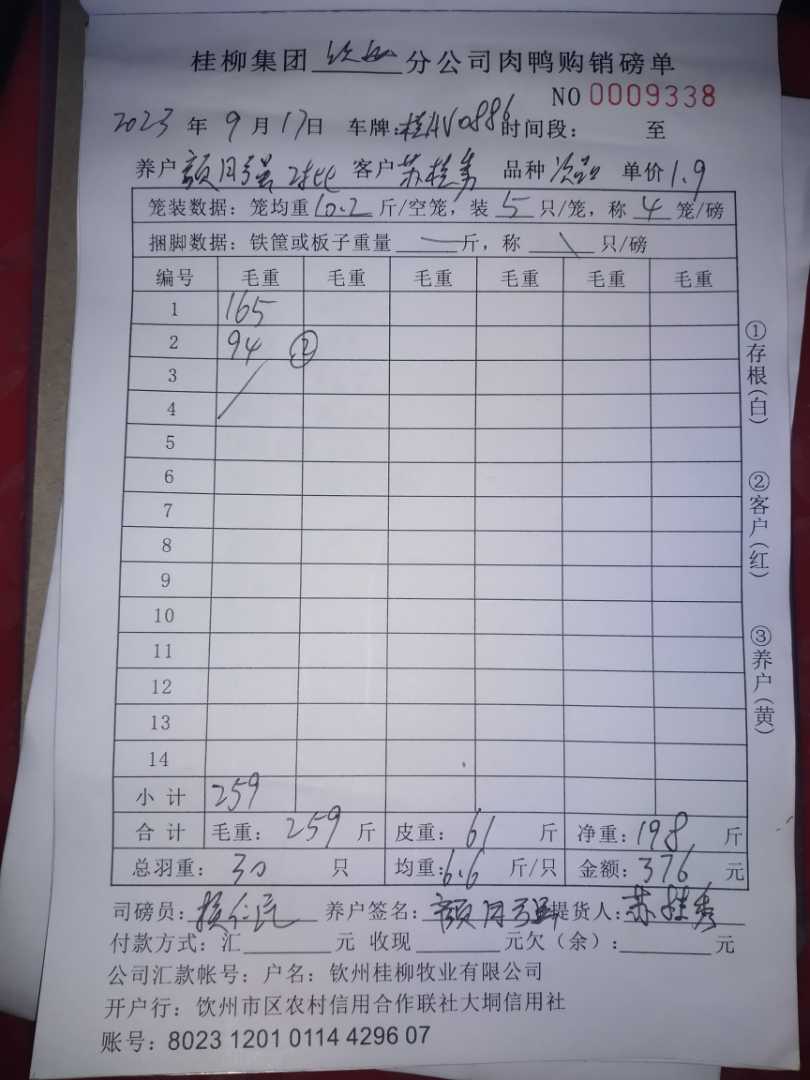 桂柳集团 钦州 分公司肉鸭购销磅单
NO 0009338
2023 年 9 月 17 日 车牌：桂AV0886 时间段： 至
养户 颜月强 客户 苏桂秀 品种 单价 1.9
笼装数据：笼均重 10.2 斤/空笼，装 5 只/笼，称 4 笼/磅
捆脚数据：铁筐或板子重量 斤，称 只/磅
编号 毛重 毛重 毛重 毛重 毛重 毛重
1 165
2 94 ②
3
4
5
6
7
8
9
10
11
12
13
14
小 计 259
合 计 毛重： 259 斤 皮重： 61 斤 净重： 198 斤
总羽重： 30 只 均重： 6.6 斤/只 金额： 376 元
司磅员： 养户签名： 颜月强 提货人： 苏桂秀
付款方式：汇 元 收现 元欠（余）： 元
公司汇款帐号：户名：钦州桂柳牧业有限公司
开户行：钦州市区农村信用合作联社大垌信用社
账号：8023 1201 0114 4296 07
①存根（白）
②客户（红）
③养户（黄）